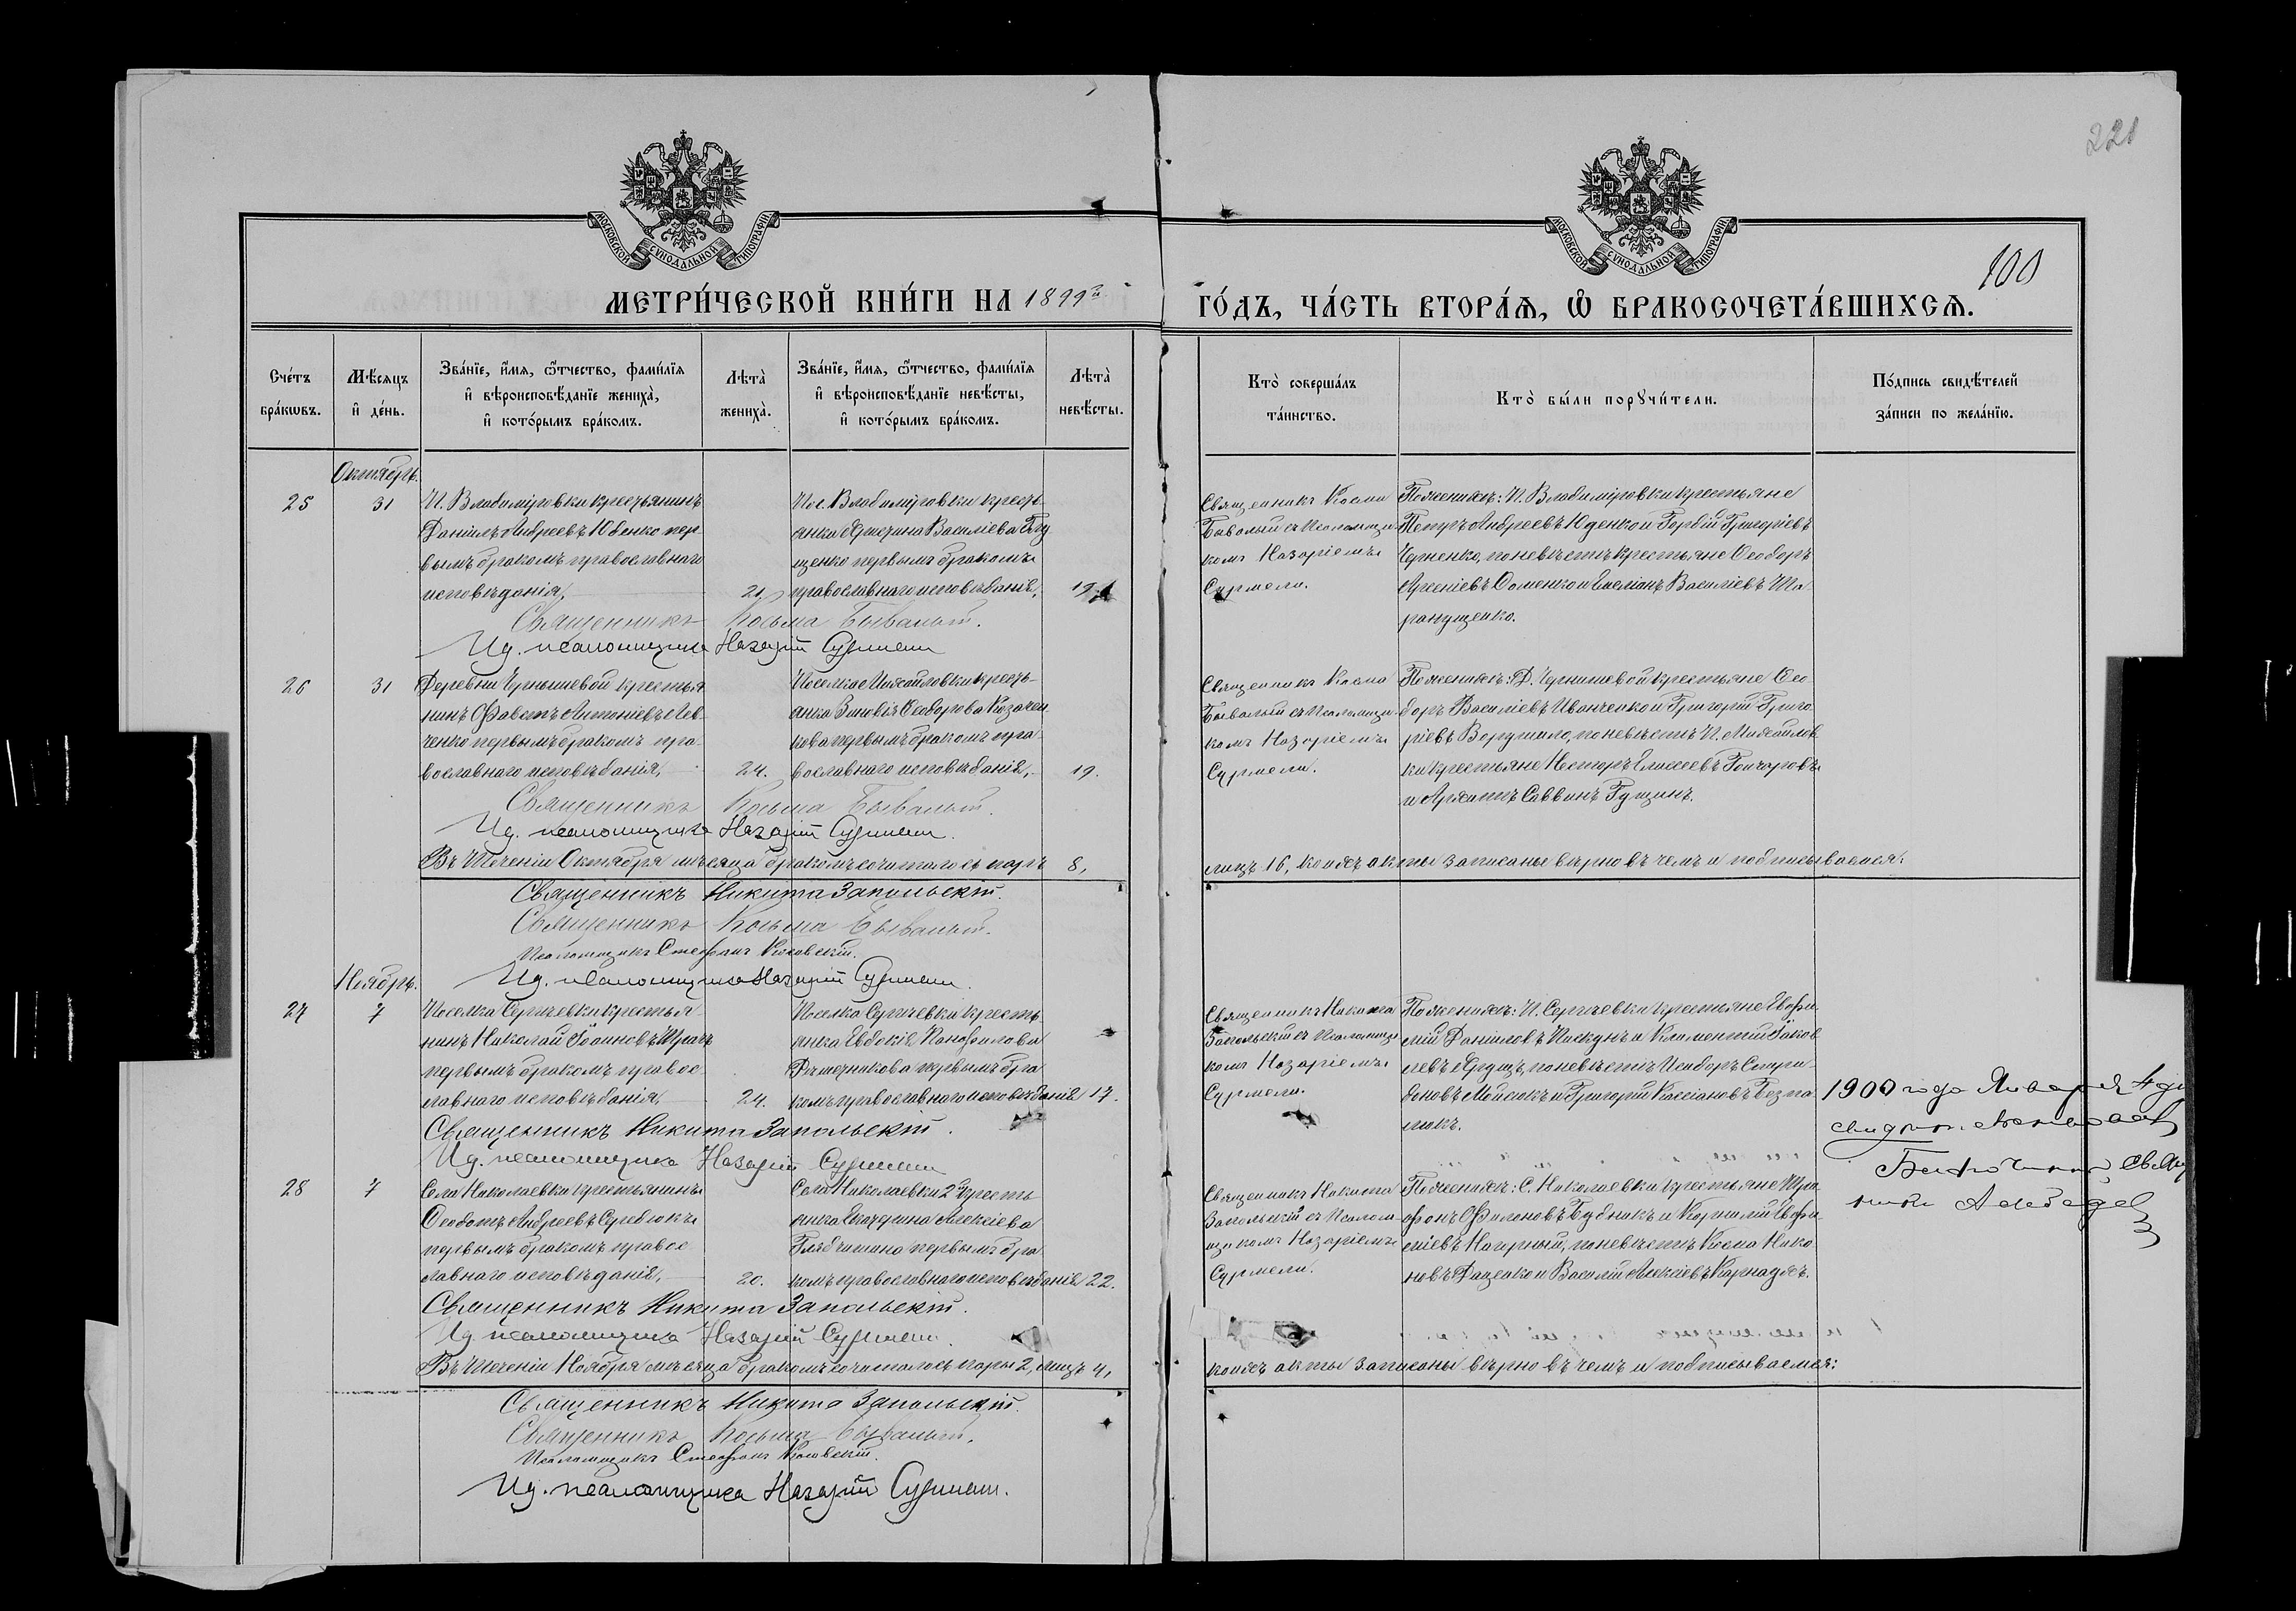 221
МОСКОВСКОЙ СѴНОДАЛЬНОЙ ТИПОГРАФІИ
МОСКОВСКОЙ СѴНОДАЛЬНОЙ ТИПОГРАФІИ
100
МЕТРИ́ЧЕСКОЙ КНИ́ГИ НА 1899й
ГО́ДЪ, ЧА́СТЬ ВТОРА́Ѧ, Ѡ҆ БРАКОСОЧЕТА́ВШИХСѦ.
Сче́тъ бра́кѡвъ.
Мѣ́сяцъ и҆ де́нь.
Зва́нїе, и҆́мѧ, ѻ҆́тчество, фами́лїѧ и҆ вѣроисповѣ́данїе жениха̀, и҆ кото́рымъ бра́комъ.
Лѣта̀ жениха̀.
Зва́нїе, и҆́мѧ, ѻ҆́тчество, фами́лїѧ и҆ вѣроисповѣ́данїе невѣ́сты, и҆ кото́рымъ бра́комъ.
Лѣта̀ невѣ́сты.
Кто̀ соверша́лъ та́инство.
Кто̀ бы́ли порꙋчи́тели.
По́дпись свидѣ́телей за́писи по жела́нїю.
Октябрь.
25
31
П. Владиміровки крестьянинъ
Даніилъ Андреевъ Юденко пер-
вымъ бракомъ православнаго
исповѣданія,
21.
Пос. Владиміровки кресть-
янка Василіева
щенко первымъ бракомъ
православнаго исповѣданія,
19
Священникъ Косма
Бывалый съ Псаломщи-
комъ Назаріемъ
Сурмели.
По женихѣ: П. Владиміровки крестьяне
Петръ Андреевъ Юденко и Григоріевъ
по невѣстѣ крестьяне Ѳеодоръ
Доменко и Емеліанъ Василіевъ Ша-
ранущенко.
Священникъ Косьма Бывалый.
Ид. псаломщика Назарій Сурмели
26
31
Деревни Чернышевой крестья-
нинъ Антоніевъ Лев-
ченко первымъ бракомъ пра-
вославнаго исповѣданія,
24.
Поселка Михайловки кресть-
янка Зиновія Ѳеодорова Козачен-
кова первымъ бракомъ пра-
вославнаго исповѣданія,
19.
Священникъ Косма
Бывалый съ Псаломщи-
комъ Назаріемъ
Сурмели.
По женихѣ: Д. Чернышевой крестьяне Ѳео-
доръ Василіевъ Иванченко и Григорій Григо-
ріевъ Ворушило, по невѣстѣ П. Михайлов-
ки крестьяне Несторъ Елисеевъ Гончаровъ
и Саввинъ Гущинъ.
Священникъ Косьма Бывалый.
Ид. псаломщика Назарій Сурмели.
Въ теченіи Октября мѣсяца бракомъ сочиталось паръ 8,
лицъ 16, коихъ акты записаны вѣрно въ чемъ и подписываемся:
Священникъ Никита Запольскій.
Священникъ Косьма Бывалый.
Псаломщикъ Стефанъ
Ид. псаломщика Назарій Сурмели.
Ноябрь.
27
7
Поселка Сергѣевки крестья-
нинъ Николай Іоанновъ
первымъ бракомъ правос-
лавнаго исповѣданія,
24.
Поселка Сергѣевки кресть-
янка Евдокія Панфилова
Рѣшетникова первымъ бра-
комъ православнаго исповѣданія
17.
Священникъ Никита
Запольскій съ Псаломщи-
комъ Назаріемъ
Сурмели.
По женихѣ: П. Сергѣевки крестьяне Евфи-
мій Даніиловъ Пискунъ и Климентій Іаков-
левъ по невѣстѣ Исидоръ Спири-
доновъ Мойсюкъ и Григорій Кассіановъ
Священникъ Никита Запольскій.
Ид. псаломщика Назарій Сурмели
1900 года Января 4 дня
Благочинный Свящ
28
7
Села Николаевки крестьянинъ
Ѳеодотъ Андреевъ Сердюкъ
первымъ бракомъ правос-
лавнаго исповѣданія,
20.
Села Николаевки 2й кресть-
янка Екатерина Алексіева
первымъ бра-
комъ православнаго исповѣданія
22.
Священникъ Никита
Запольскій съ Псалом-
щикомъ Назаріемъ
Сурмели.
По женихѣ: С. Николаевки крестьяне Три-
фонъ Филоновъ Будникъ и Корнилій Евфи-
міевъ Нагорный, по невѣстѣ Косма Нико-
новъ Даценко и Василій Алексіевъ Карнаухъ.
Священникъ Никита Запольскій.
Ид. псаломщика Назарій Сурмели.
Въ теченіи Ноября мѣсяца бракомъ сочиталось пары 2, лицъ 4,
коихъ акты записаны вѣрно въ чемъ и подписываемся:
Священникъ Никита Запольскій.
Священникъ Косьма Бывалый.
Псаломщикъ Стефанъ
Ид. псаломщика Назарій Сурмели.